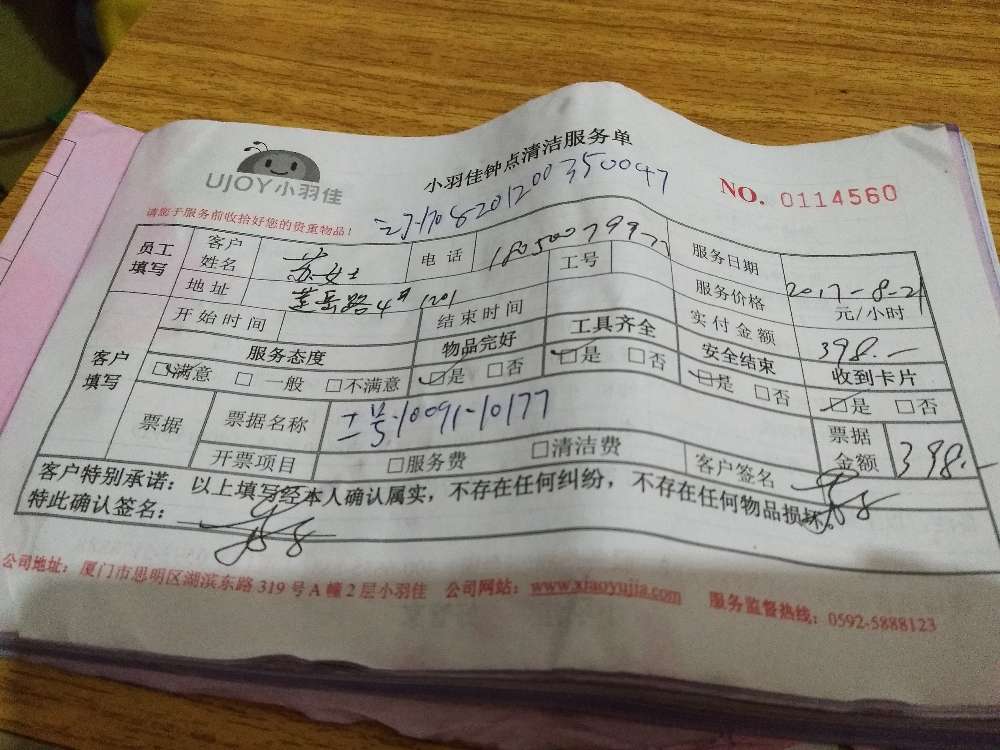 UJOY小羽佳
小羽佳钟点清洁服务单
NO. 0114560
请您于服务前收拾好您的贵重物品!
170820120035004
员工填写 客户姓名 苏女士 电话 服务日期 2017-8-21
地址 岳路4# 1201 工号 服务价格 元/小时
开始时间 结束时间 实付金额 398.-
客户填写 服务态度 物品完好 工具齐全 安全结束 收到卡片
☑满意 □ 一般 □不满意 ☑是 □否 ☑是 □否 ☑是 □否 ☑是 □否
票据 票据名称 10091-10177 票据金额 398.-
开票项目 □服务费 □清洁费 客户签名
客户特别承诺:以上填写经本人确认属实,不存在任何纠纷,不存在任何物品损坏。
特此确认签名:
公司地址:厦门市思明区湖滨东路 319 号 A 幢 2 层小羽佳 公司网站:www.xiaoyujia.com 服务监督热线:0592-5888123